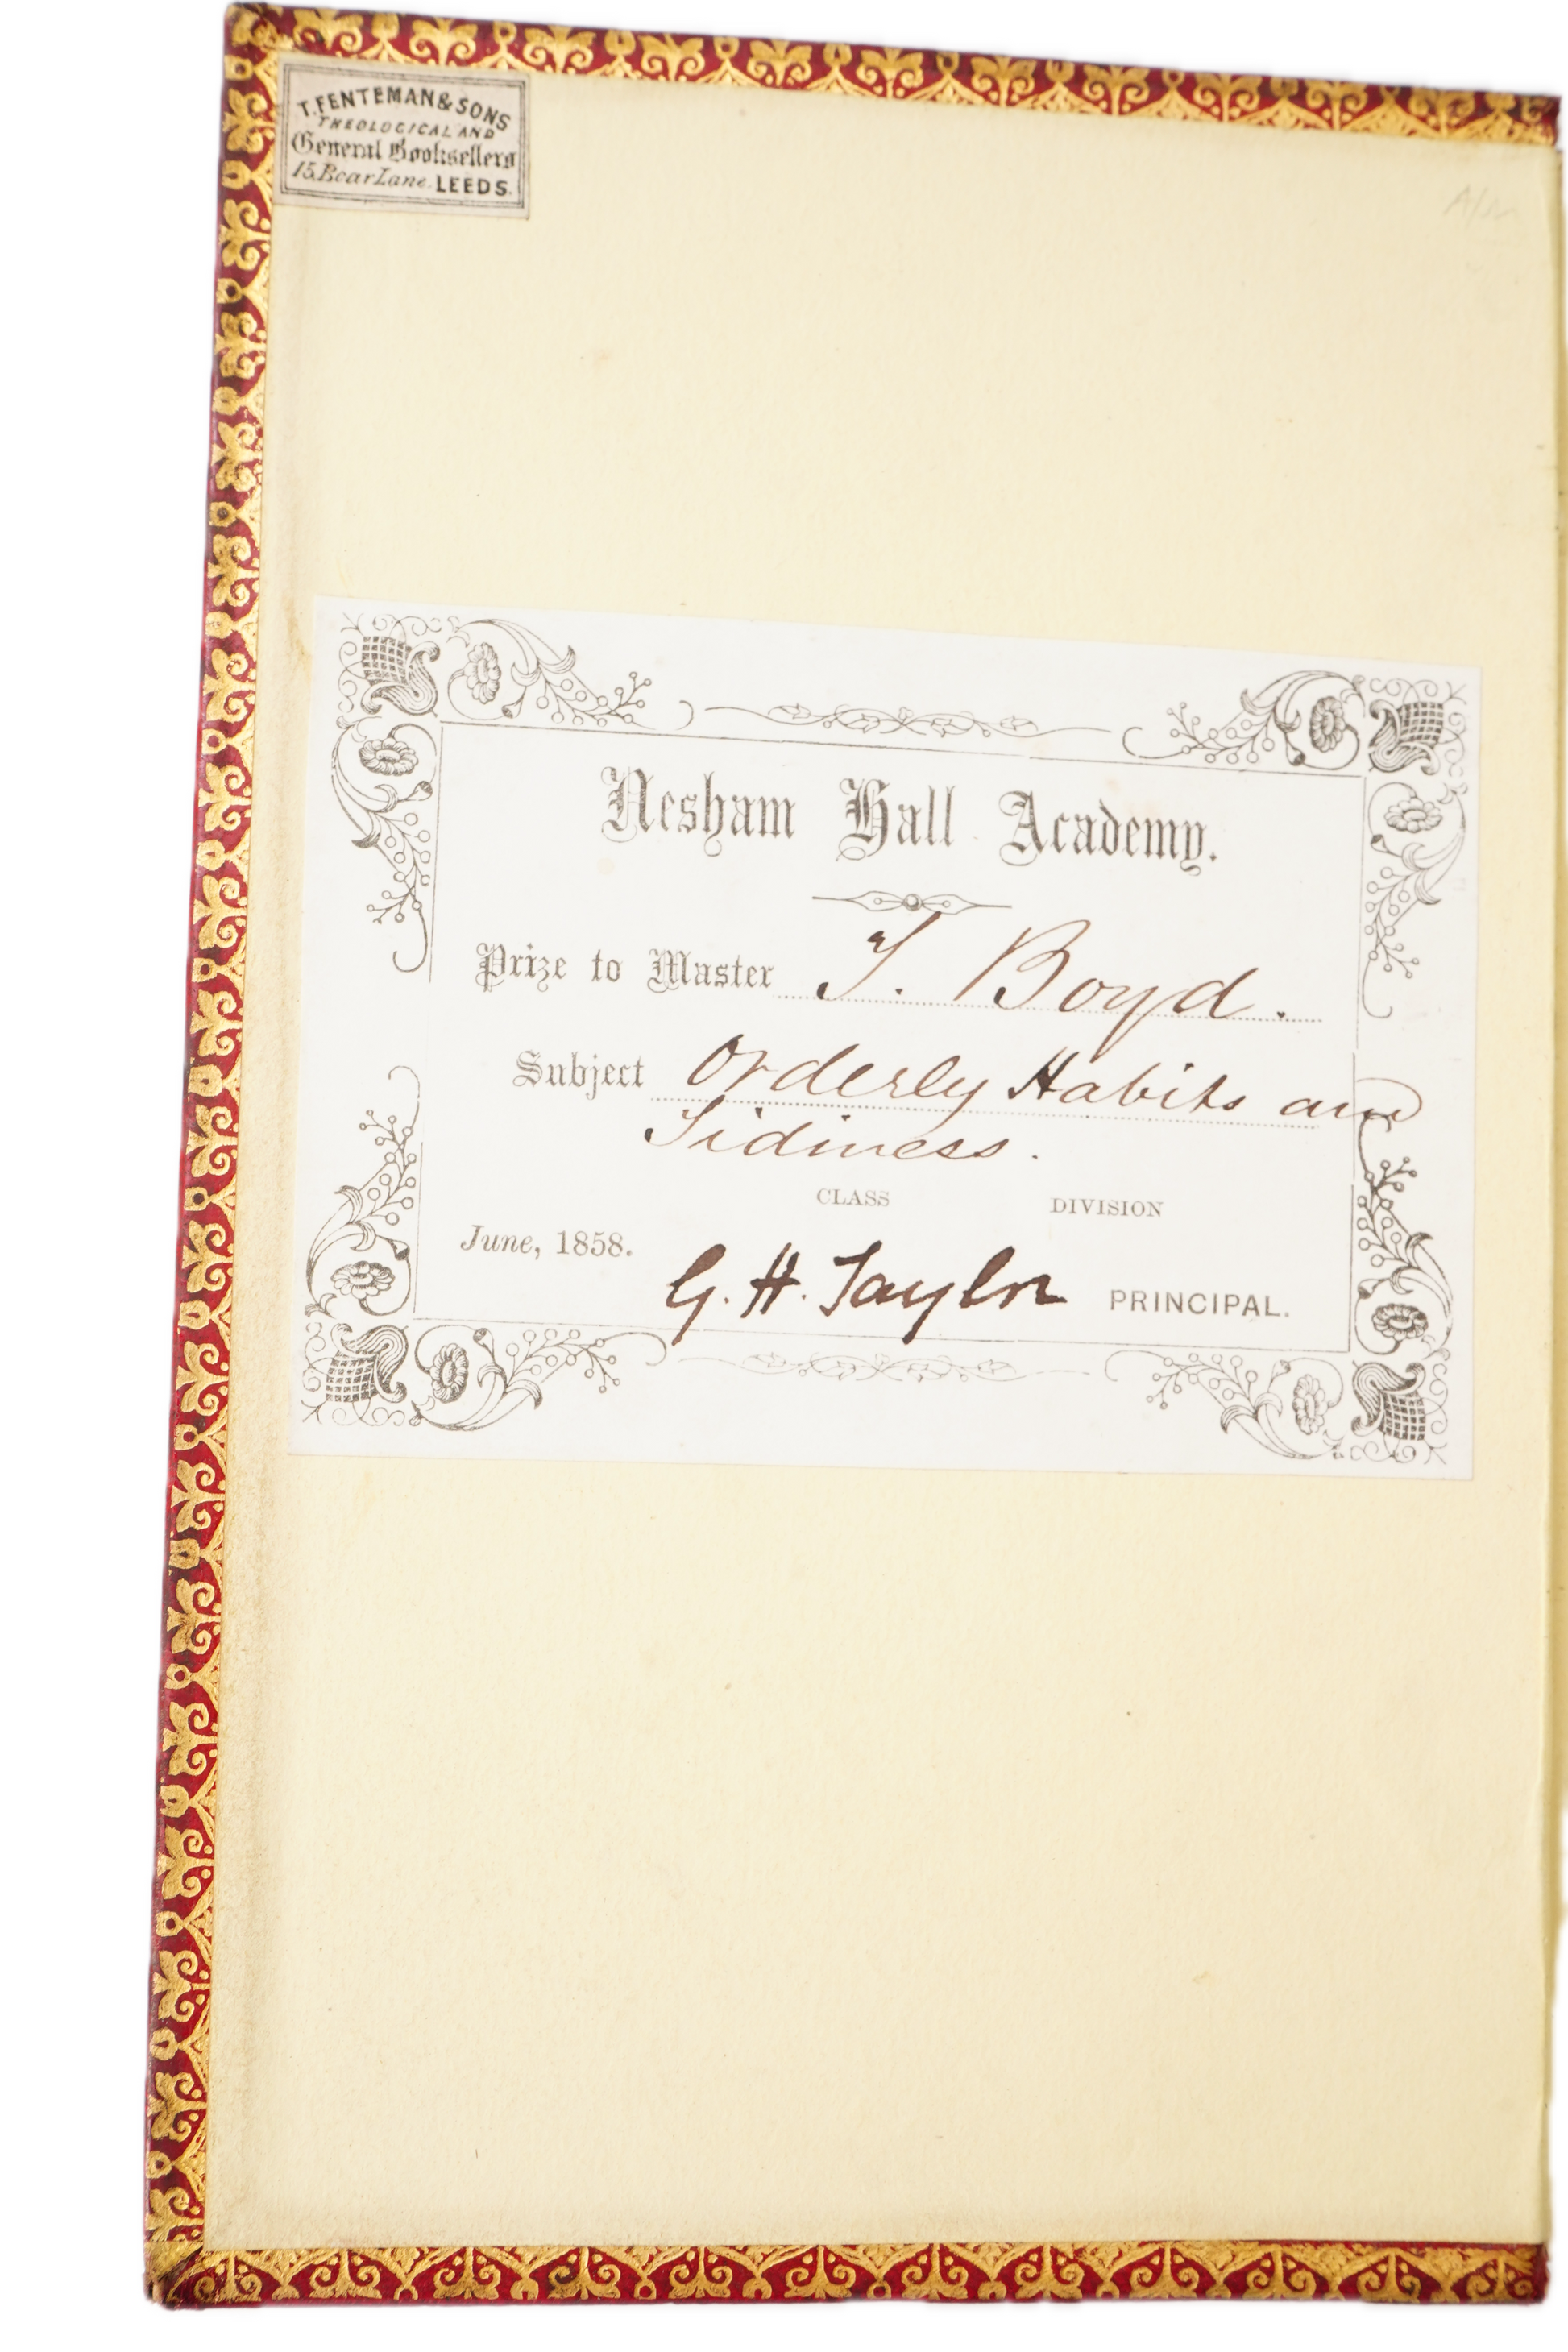 T. FENTEMAN & SONS
THEOLOGICAL AND
General Booksellers
15, Boar Lane. LEEDS.
Nesham Hall Academy.
Prize to Master T. Boyd.
Subject Orderly Habits and
Tidiness.
CLASS DIVISION
June, 1858.
G. H. Taylor PRINCIPAL.